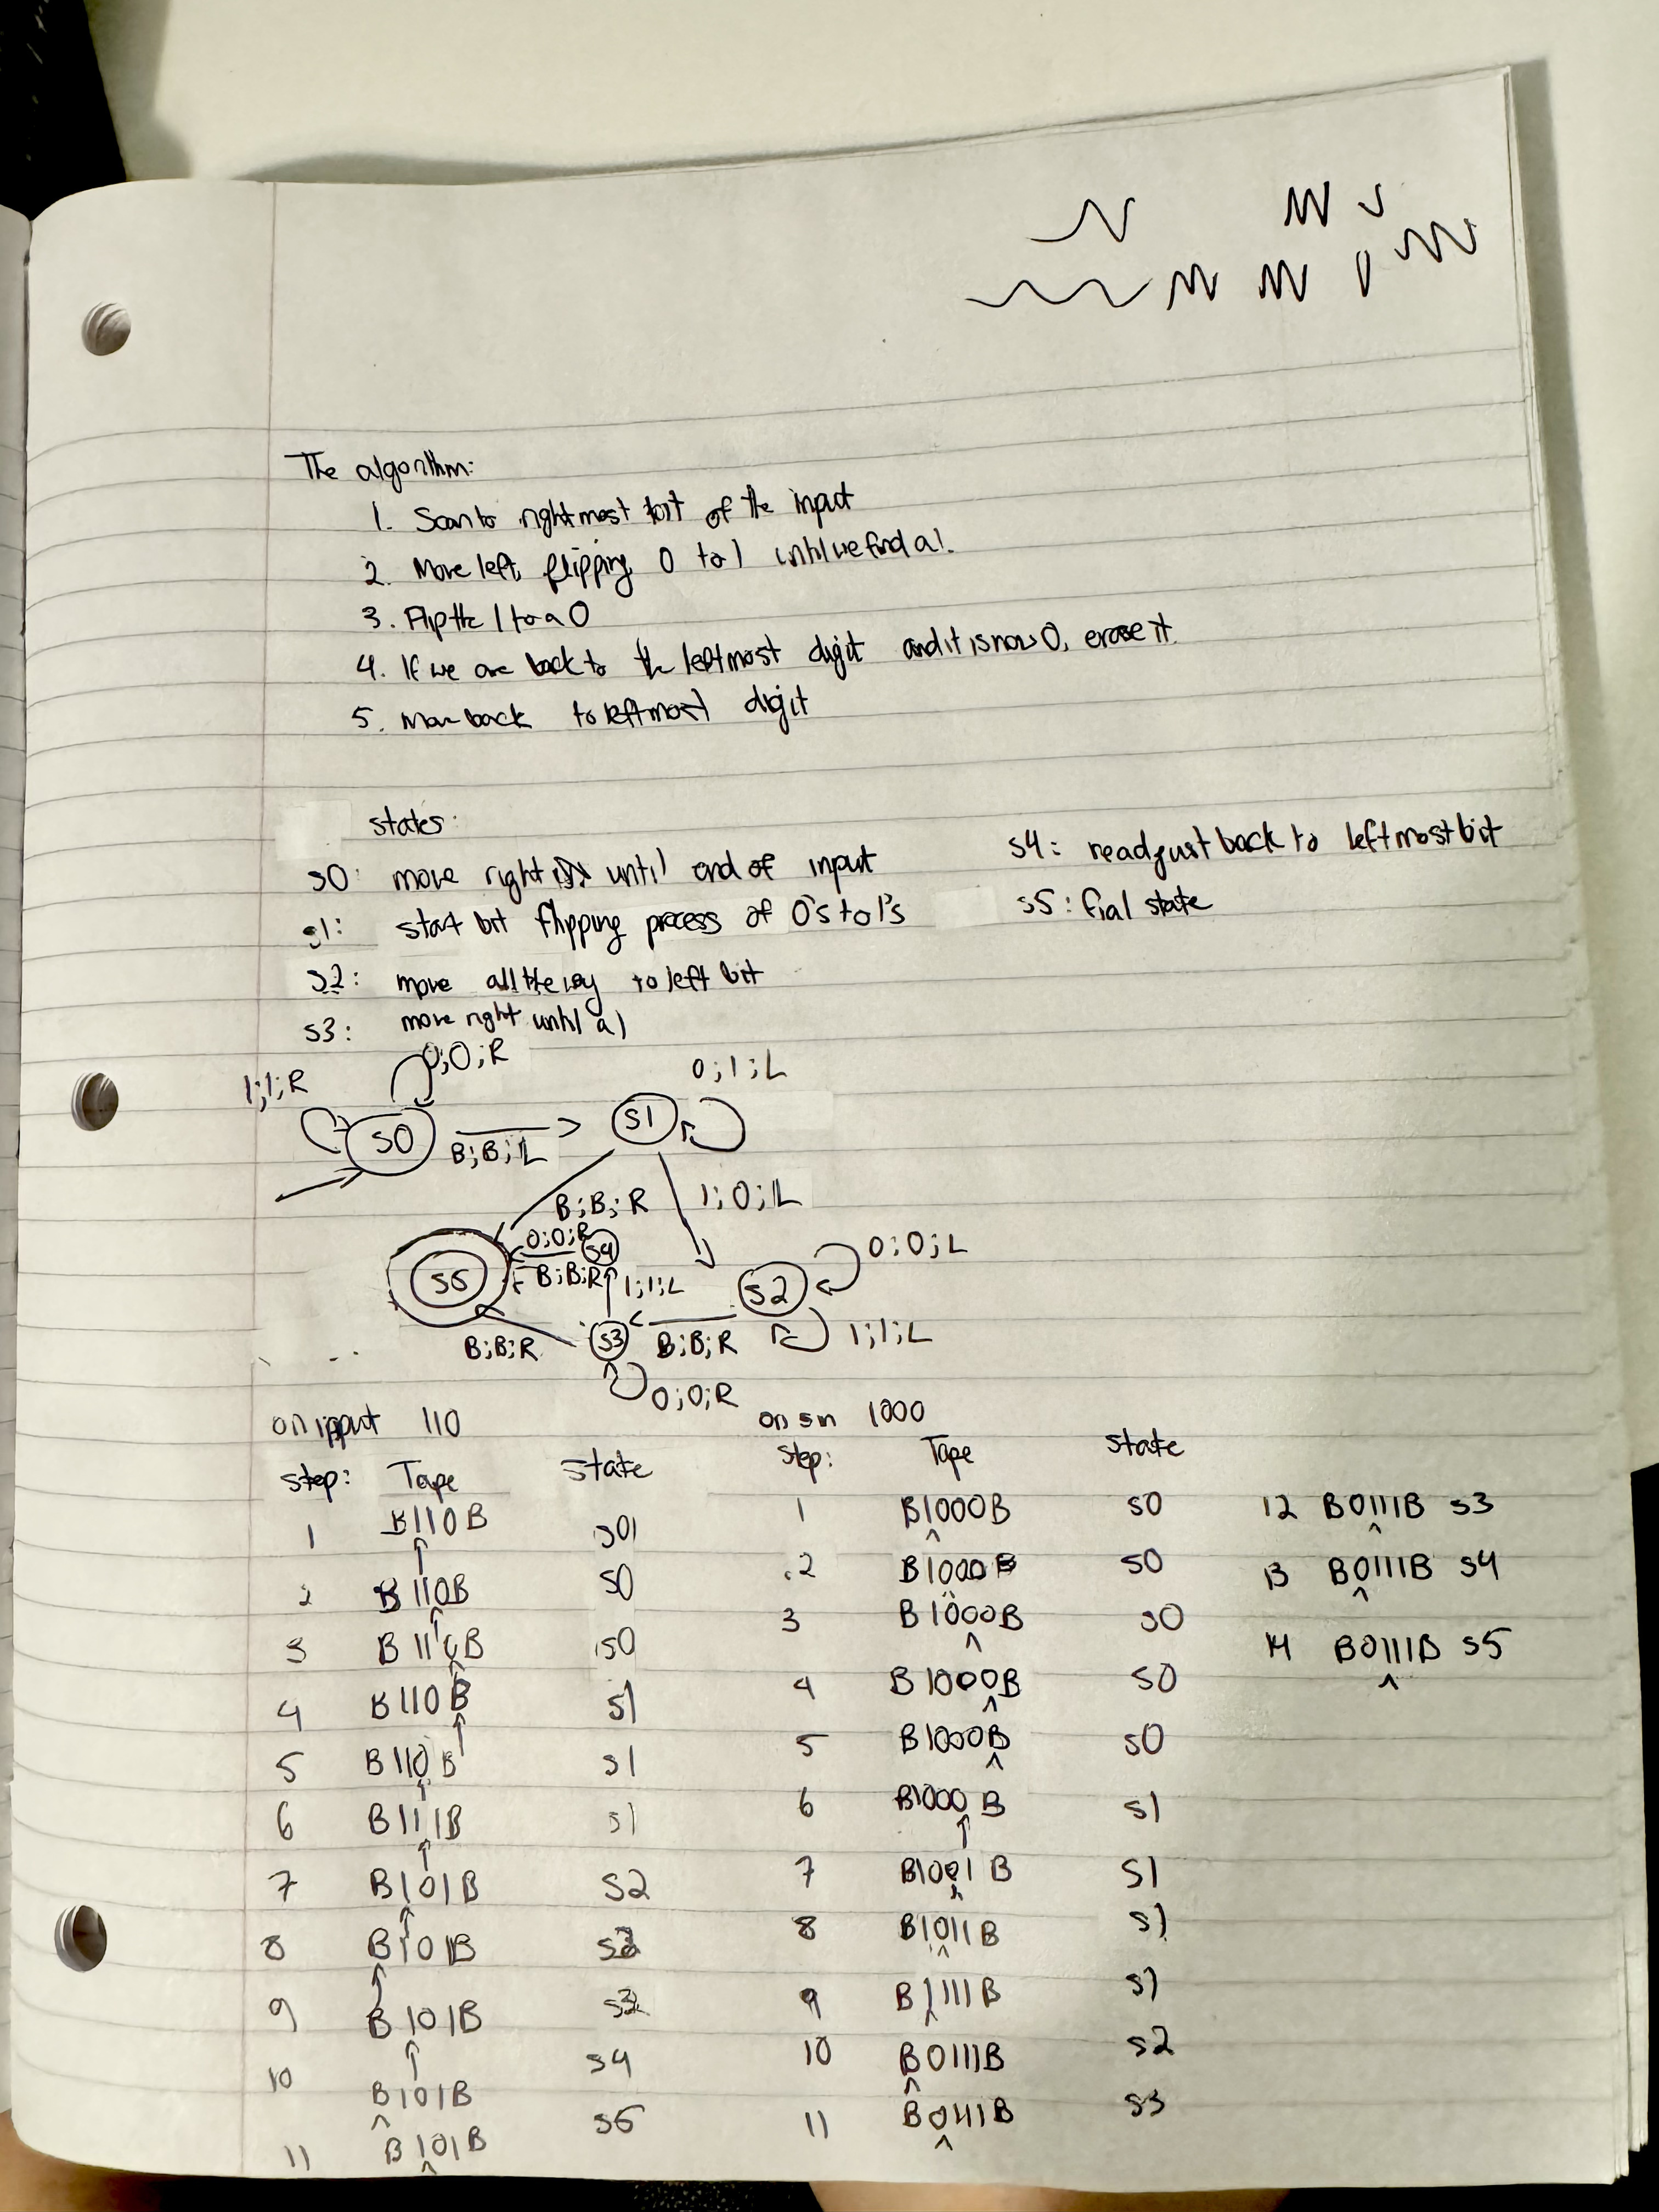 The algorithm:
1. Scan to rightmost bit of the input
2. Move left, flipping 0 to 1 until we find a 1.
3. Flip the 1 to a 0
4. If we are back to the leftmost digit and it is now 0, erase it.
5. Move back to leftmost digit
states:
s0: move right until end of input
s1: start bit flipping process of 0's to 1's
s2: move all the way to left bit
s3: move right until a 1
s4: readjust back to leftmost bit
s5: fial state
1;1;R
0;0;R
s0
B;B;L
s1
0;1;L
B;B;R
1;0;L
0;0;R
s4
B;B;R
s5
1;1;L
s2
0;0;L
1;1;L
B;B;R
s3
B;B;R
0;0;R
on input 110
step: Tape state
1 B110B s0
2 B110B s0
3 B110B s0
4 B110B s1
5 B110B s1
6 B111B s1
7 B101B s2
8 B101B
9 B101B
10 B101B s4
11 B101B s5
on 1000
step: Tape state
1 B1000B s0
2 B1000B s0
3 B1000B s0
4 B1000B s0
5 B1000B s0
6 B1000B s1
7 B1001B s1
8 B1011B s1
9 B1111B s1
10 B0111B s2
11 B0111B s3
12 B0111B s3
13 B0111B s4
14 B0111B s5